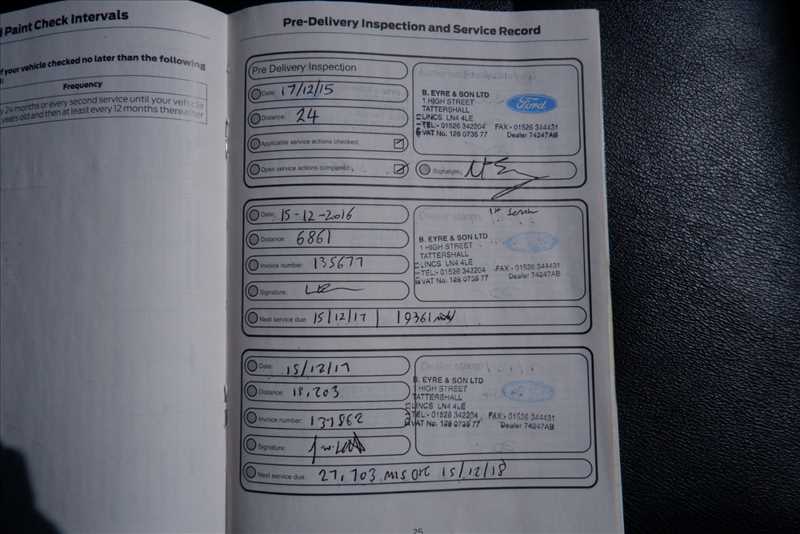 Paint Check Intervals
if your vehicle checked no later than the following
Frequency
24 months or every second service until your vehicle
years old and then at least every 12 months thereafter
Pre-Delivery Inspection and Service Record
Pre Delivery Inspection
Date: 17/12/15
Distance: 24
Applicable service actions checked:
Open service actions completed:
B. EYRE & SON LTD
1 HIGH STREET
TATTERSHALL
LINCS LN4 4LE
TEL - 01526 342204 FAX - 01526 344431
VAT No. 128 0735 77 Dealer 74247AB
Ford
Signature:
Date: 15-12-2016
Distance: 6861
Invoice number: 135677
Signature:
Next service due: 15/12/17 | 19361 mls
1st Service
B. EYRE & SON LTD
1 HIGH STREET
TATTERSHALL
LINCS LN4 4LE
TEL - 01526 342204 FAX - 01526 344431
VAT No. 128 0735 77 Dealer 74247AB
Date: 15/12/17
Distance: 15,203
Invoice number: 137862
Signature:
Next service due: 27,703 MLS OR 15/12/18
Dealer stamp:
B. EYRE & SON LTD
1 HIGH STREET
TATTERSHALL
LINCS LN4 4LE
TEL - 01526 342204 FAX - 01526 344431
VAT No. 128 0735 77 Dealer 74247AB
25